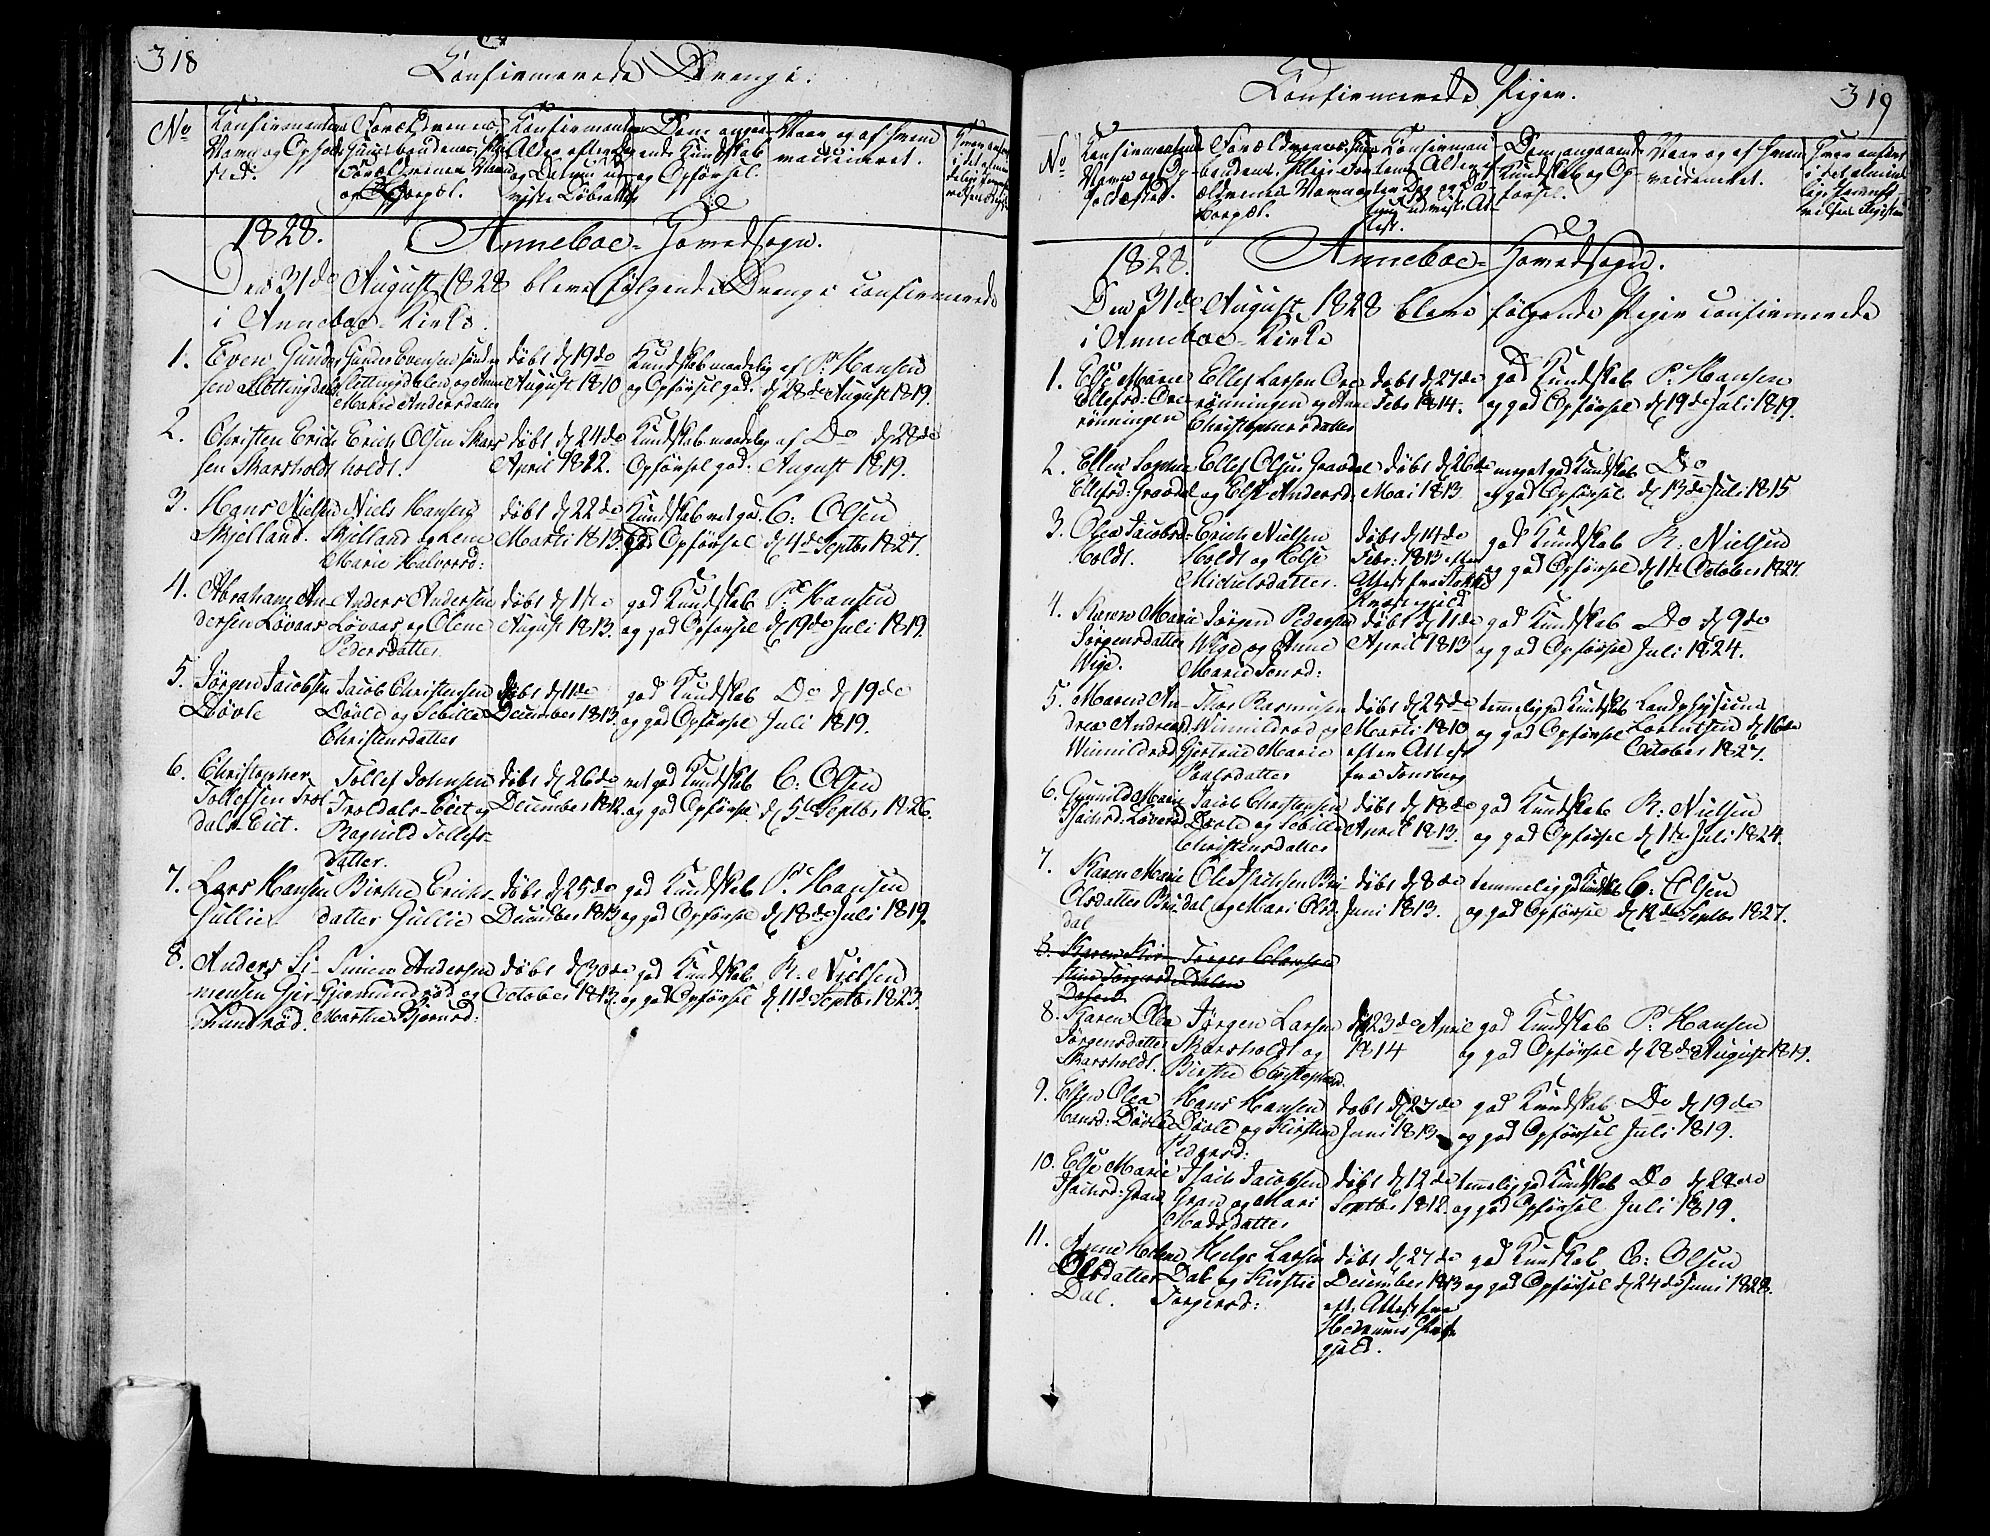 318
Confirmerede Drenge.
No
Confirmantens
Navn og Opholds
sted.
Forældrenes,
Huusbondens,
Forældrenes Navn
og
Confirmantens
Alder efter
og Datum ud
viste Døbeattest
Dom angaa
ende Kundskab
og Opførsel.
Naar og af hvem
vaccineret.
1828. Anneboe-Hovedsogn.
Den 31de August 1828 bleve følgende Drenge confirmerede
i Anneboe-Kirke.
1. Even Gunder
sen Slettingdalen
Gunder Evensen
Slettingdalen og Anne
Marie Andersdatter
døbt d 19de
August 1810
Kundskab maadelig
og Opførsel god.
af P. Hansen
d 28de August 1819.
2. Christen Erich
sen Skarsholdt
Erich Olsen Skars
holdt.
døbt d 24de
April 1812.
Kundskab maadelig
Opførsel god.
af Do d 29de
August 1819.
3. Hans Nielsen
Skjelland.
Niels Hansen
Skjelland og Lene
Marie Halvorsd:
døbt d 22de
Martii 1813.
Kundskab ret god
god Opførsel
C: Olsen
d 4de Septbr 1827.
4. Abraham An-
dersen Løvaas
Anders Andersen
Løvaas og Olene
Pedersdatter
døbt d 1te
August 1813.
god Kundskab
og god Opførsel
P. Hansen
d 19de Juli 1819.
5. Jørgen Jacobsen
Døvle
Jacob Christensen
Døvle og Sebille
Christensdatter
døbt d 11de
December 1813.
god Kundskab
og god Opførsel
Do d 19de
Juli 1819.
6. Christopher
Tollefsen Trol
dals-Eiet.
Tollef Johnsen
Troldals-Eiet og
Ragnild Tollefs-
datter.
døbt d 26de
December 1812
ret god Kundskab
og god Opførsel
C: Olsen
d 5te Septbr 1826.
7. Lars Hansen
Gullie
Birthe Erichs-
datter Gullie
døbt d 25de
December 1813
god Kundskab
og god Opførsel
P. Hansen
d 18de Juli 1819.
8. Anders Si-
mensen Gjer-
mundrød.
Simen Andersen
Gjermundrød og
Marthe Bjørnsd:
døbt d 30de
October 1813.
god Kundskab
og god Opførsel
R. Nielsen
d 11de Septbr 1823.
319
Confirmerede Piger.
No
Confirmantens
Navn og Op-
holdssted.
Dom angaaende
Kundskab og Op-
førsel.
Naar og af hvem
vaccineret.
1828. Anneboe-Hovedsogn.
Den 31de August 1828 bleve følgende Piger confirmerede
i Anneboe-Kirke
1. Else Maria
Ellefsd: Ove
rønningen
Ellef Larsen Ove
rønningen og Anne
Christophersdatter
døbt d 27de
Febr 1814.
god Kundskab
og god Opførsel
P. Hansen
d 19de Juli 1819.
2. Ellen Sophia
Ellefsd: Gravdal
Ellef Olsen Gravdal
og Else Andersd:
døbt d 26de
Mai 1813
meget god Kundskab
og god Opførsel
Do
d 13de Juli 1815
3. Olea Jacobsd:
Holdt.
Erich Nielsen
Holdt og Else
Michelsdatter.
døbt d 14de
Febr: 1813 efter
Attest fra
Præstegjeld
god Kundskab
og god Opførsel
R: Nielsen
d 11te October 1827.
4. Karen Marie
Jørgensdatter
Wige.
Jørgen Pedersen
Wige og Anne
Marie
døbt d 11de
April 1813
god Kundskab
og god Opførsel
Do d 9de
Juli 1824.
5. Maren An-
drea Andersd.
Winnildrød
Thor Rasmusen
Winnildrød og
Gjertrud Marie
Paulsdatter
døbt d 25de
Martii 1810
efter Attest
fra Tønsberg
temmelig god Kundskab
og god Opførsel
Landphysicus
Lorentsen d 16de
October 1827.
6. Gunnild Marie
Jacob Christensen
Døvle og Sebille
Christensdatter
døbt d 18de
April 1813.
god Kundskab
og god Opførsel
R: Nielsen
d 11te Juli 1824.
7. Karen Marie
Olsdatter Bru
dal
Ole Isachsen Bru
dal og Mari Olsd.
døbt d 8de
Juni 1813.
temmelig god Kundskab
og god Opførsel
C: Olsen
d 12de Septbr 1827.
8. Karen Kir-
stine Torgersd.
Dalen
Torger Clausen
Dalen
8. Karen Olea
Jørgensdatter
Skarsholdt.
Jørgen Larsen
Skarsholdt og
Birthe Christophersd.
d 23de April
1814
god Kundskab
og god Opførsel
P. Hansen
d 28de August 1819.
9. Ellen Olea
Hansd: Døvle
Hans Hansen
Døvle og Kirstine
Pedersd:
døbt d 27de
Juni 1813
god Kundskab
og god Opførsel
Do d 19de
Juli 1819.
10. Else Marie
Isachsd: Gran
Isach Jacobsen
Gran og Mari
Madsdatter
døbt d 12de
Septbr 1812.
temmelig god Kundskab
og god Opførsel
Do d 29de
Juli 1819.
11. Anne Helene
Olsdatter
Dal.
Helge Larsen
Dal og Kirstie
Torgersd:
døbt d 27de
December 1813
eft. Attest fra
Hedrums Præste
gjeld.
god Kundskab
og god Opførsel
C: Olsen
d 24de Juni 1828.